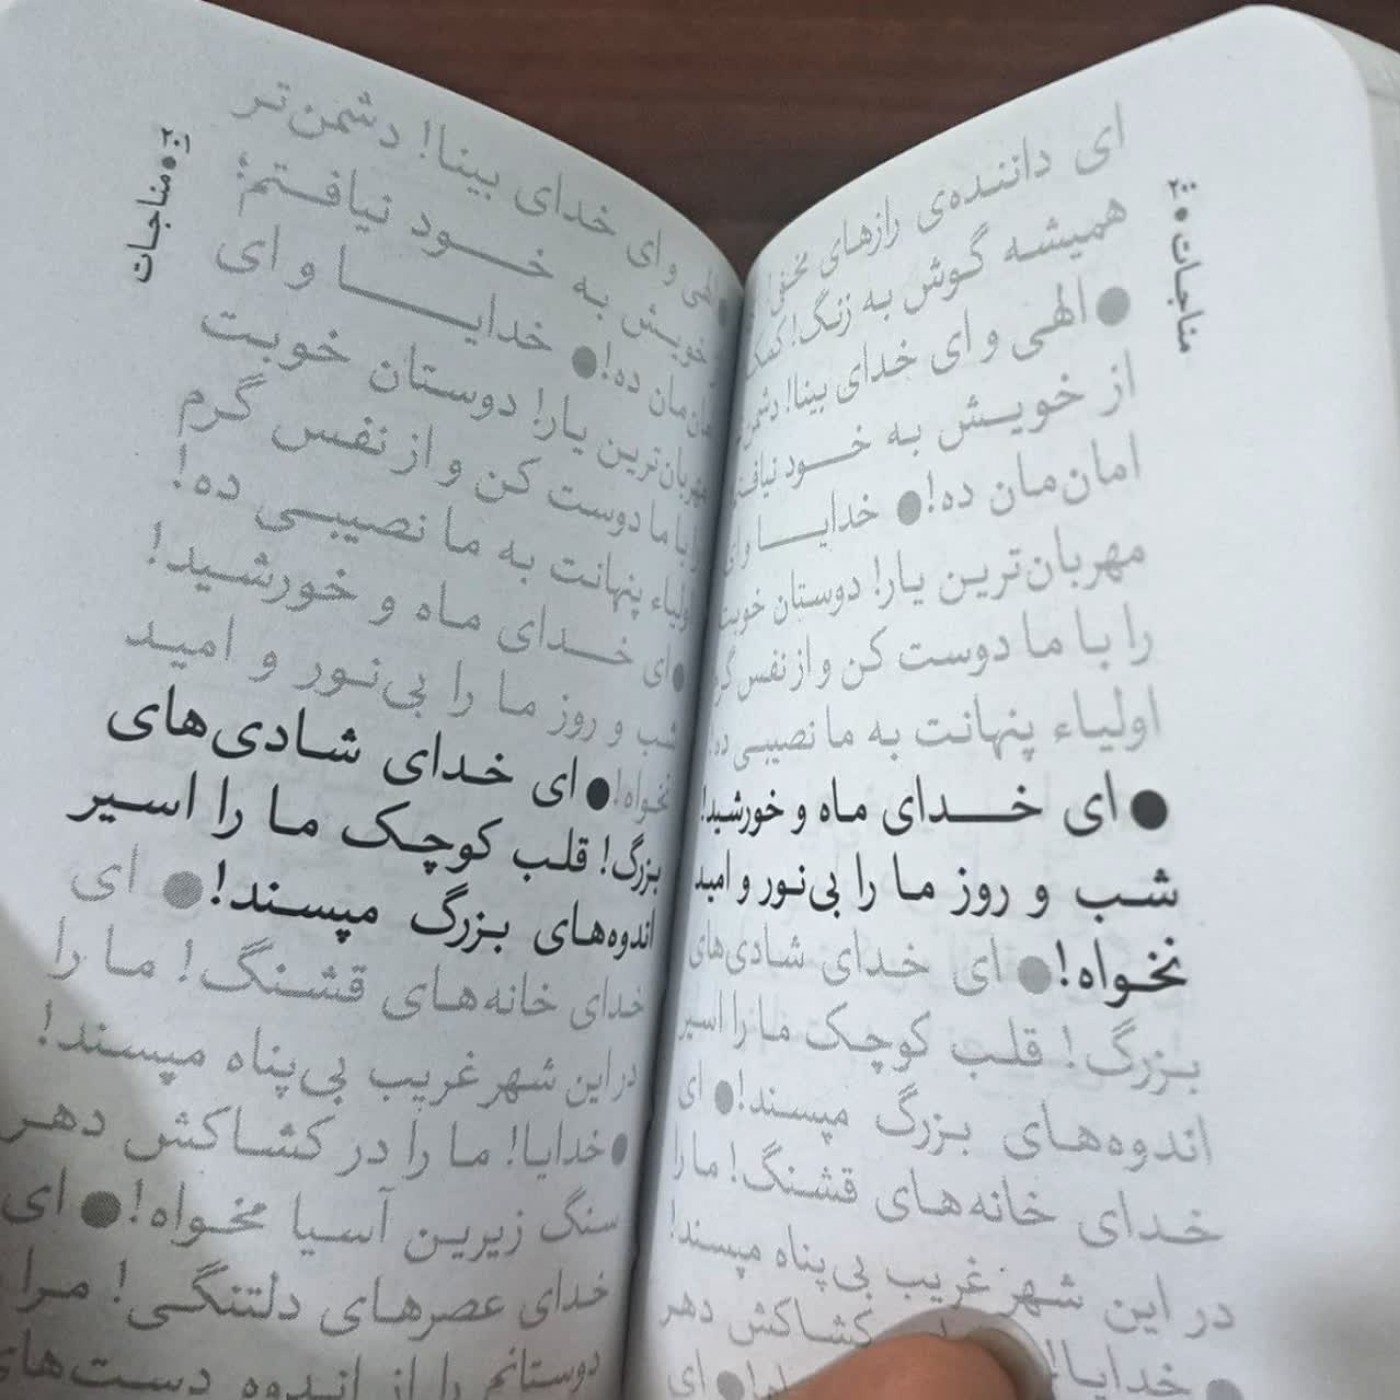 مناجات
ای داننده‌ی رازهای مخفی!
همیشه گوش به زنگ! کمک
● الهی و ای خدای بینا! دشمن
از خویش به خود نیافتم
امان‌مان ده! ● خدایا و ای
مهربان‌ترین یار! دوستان خوبت
را با ما دوست کن و از نفس گرم
اولیاء پنهانت به ما نصیبی ده!
● ای خدای ماه و خورشید!
شب و روز ما را بی‌نور و امید
نخواه! ● ای خدای شادی‌های
بزرگ! قلب کوچک ما را اسیر
اندوه‌های بزرگ مپسند! ● ای
خدای خانه‌های قشنگ! ما را
در این شهر غریب بی‌پناه مپسند!
● خدایا! کشاکش دهر
ای
مناجات
● الهی و ای خدای بینا! دشمن‌تر
از خویش به خود نیافتم؛
امان‌مان ده! ● خدایا و ای
مهربان‌ترین یار! دوستان خوبت
را با ما دوست کن و از نفس گرم
اولیاء پنهانت به ما نصیبی ده!
● ای خدای ماه و خورشید!
شب و روز ما را بی‌نور و امید
نخواه! ● ای خدای شادی‌های
بزرگ! قلب کوچک ما را اسیر
اندوه‌های بزرگ مپسند! ● ای
خدای خانه‌های قشنگ! ما را
در این شهر غریب بی‌پناه مپسند!
● خدایا! ما را در کشاکش دهر
سنگ زیرین آسیا مخواه! ● ای
خدای عصرهای دلتنگی! مرا
دوستانم را از اندوه دست‌های